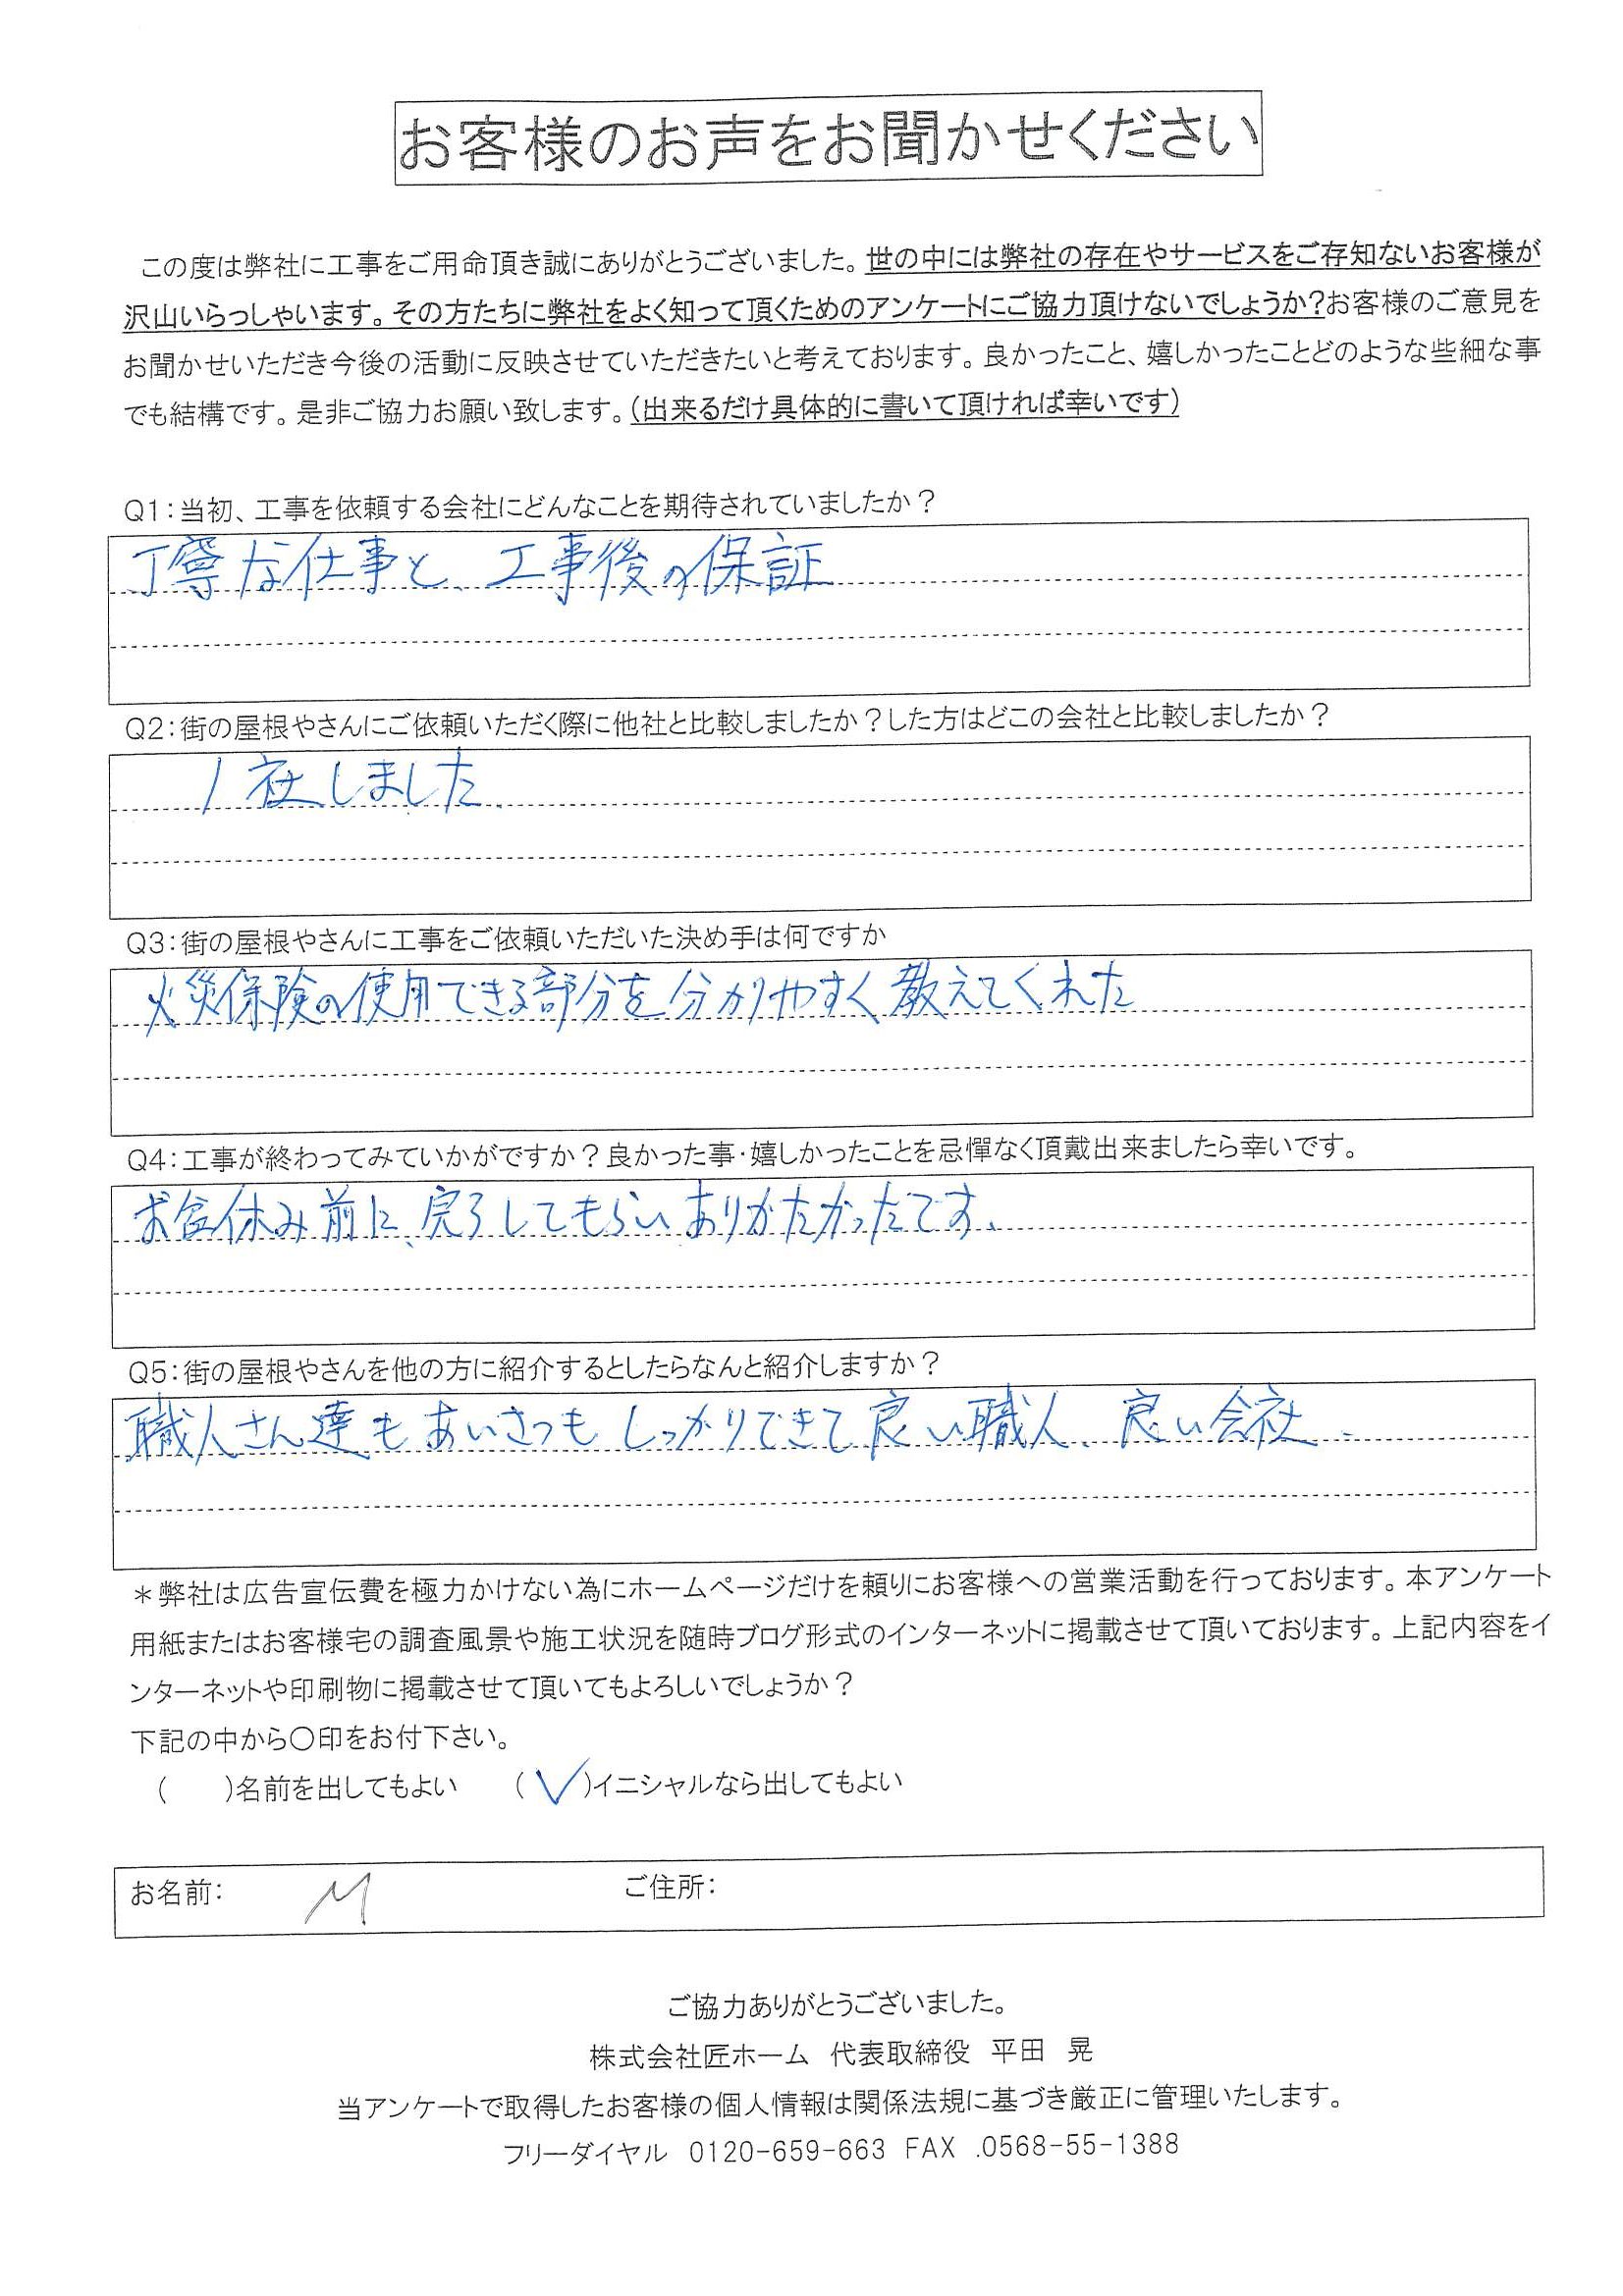 お客様のお声をお聞かせください
この度は弊社に工事をご用命頂き誠にありがとうございました。世の中には弊社の存在やサービスをご存知ないお客様が
沢山いらっしゃいます。その方たちに弊社をよく知って頂くためのアンケートにご協力頂けないでしょうか?お客様のご意見を
お聞かせいただき今後の活動に反映させていただきたいと考えております。良かったこと、嬉しかったことどのような些細な事
でも結構です。是非ご協力お願い致します。(出来るだけ具体的に書いて頂ければ幸いです)
Q1:当初、工事を依頼する会社にどんなことを期待されていましたか?
丁寧な仕事と、工事後の保証
Q2:街の屋根やさんにご依頼いただく際に他社と比較しましたか?した方はどこの会社と比較しましたか?
1社しました。
Q3:街の屋根やさんに工事をご依頼いただいた決め手は何ですか
火災保険の使用できる部分を分かりやすく教えてくれた
Q4:工事が終わってみていかがですか?良かった事・嬉しかったことを忌憚なく頂戴出来ましたら幸いです。
お盆休み前に、完了してもらいありがたかったです。
Q5:街の屋根やさんを他の方に紹介するとしたらなんと紹介しますか?
職人さん達もあいさつもしっかりできて良い職人、良い会社。
*弊社は広告宣伝費を極力かけない為にホームページだけを頼りにお客様への営業活動を行っております。本アンケート
用紙またはお客様宅の調査風景や施工状況を随時ブログ形式のインターネットに掲載させて頂いております。上記内容をイ
ンターネットや印刷物に掲載させて頂いてもよろしいでしょうか?
下記の中から〇印をお付下さい。
( )名前を出してもよい (✓)イニシャルなら出してもよい
お名前: M ご住所:
ご協力ありがとうございました。
株式会社匠ホーム 代表取締役 平田 晃
当アンケートで取得したお客様の個人情報は関係法規に基づき厳正に管理いたします。
フリーダイヤル 0120-659-663 FAX .0568-55-1388